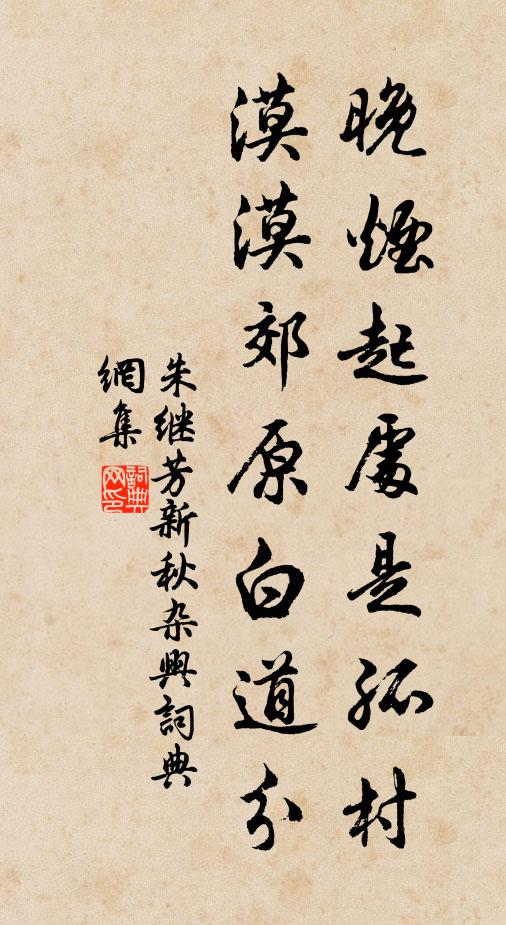 晚烟起處是孤村
漠漠郊原白道分
朱继芳新秋杂興詞典
網集
詞典
网印